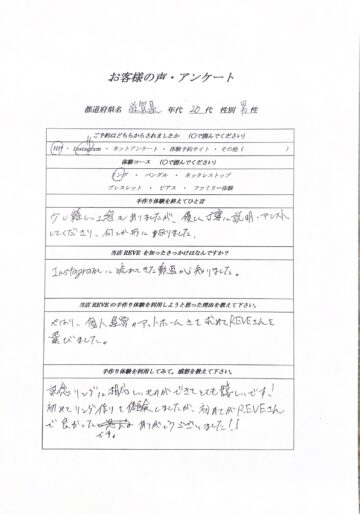 お客様の声・アンケート
都道府県名 滋賀県 年代 20 代 性別 男 性
ご予約はどちらからされましたか (○で囲んでください)
HP ・ Instagram ・ ホットアンケート ・ 体験予約サイト ・ その他 ( )
体験コース (○で囲んでください)
リング ・ バングル ・ ネックレストップ
ブレスレット ・ ピアス ・ ファミリー体験
手作り体験を終えてひと言
少し難しい工程もありましたが、優しく丁寧に説明・アシスト
してくださり、何とか形に 。
当店 REVE を知ったきっかけはなんですか?
Instagramに流れてきた動画から知りました。
当店 REVE の手作り体験を利用しようと思った理由を教えて下さい。
やはり、個人経営のアットホームさを求めてREVEさんを
選びました。
手作り体験を利用してみて。感想を教えて下さい。
婚約リングに相応しいものができてとても嬉しいです!
初めてリング作りを体験しましたが、初めてがREVEさん
で良かった ありがとうございました!!
です。